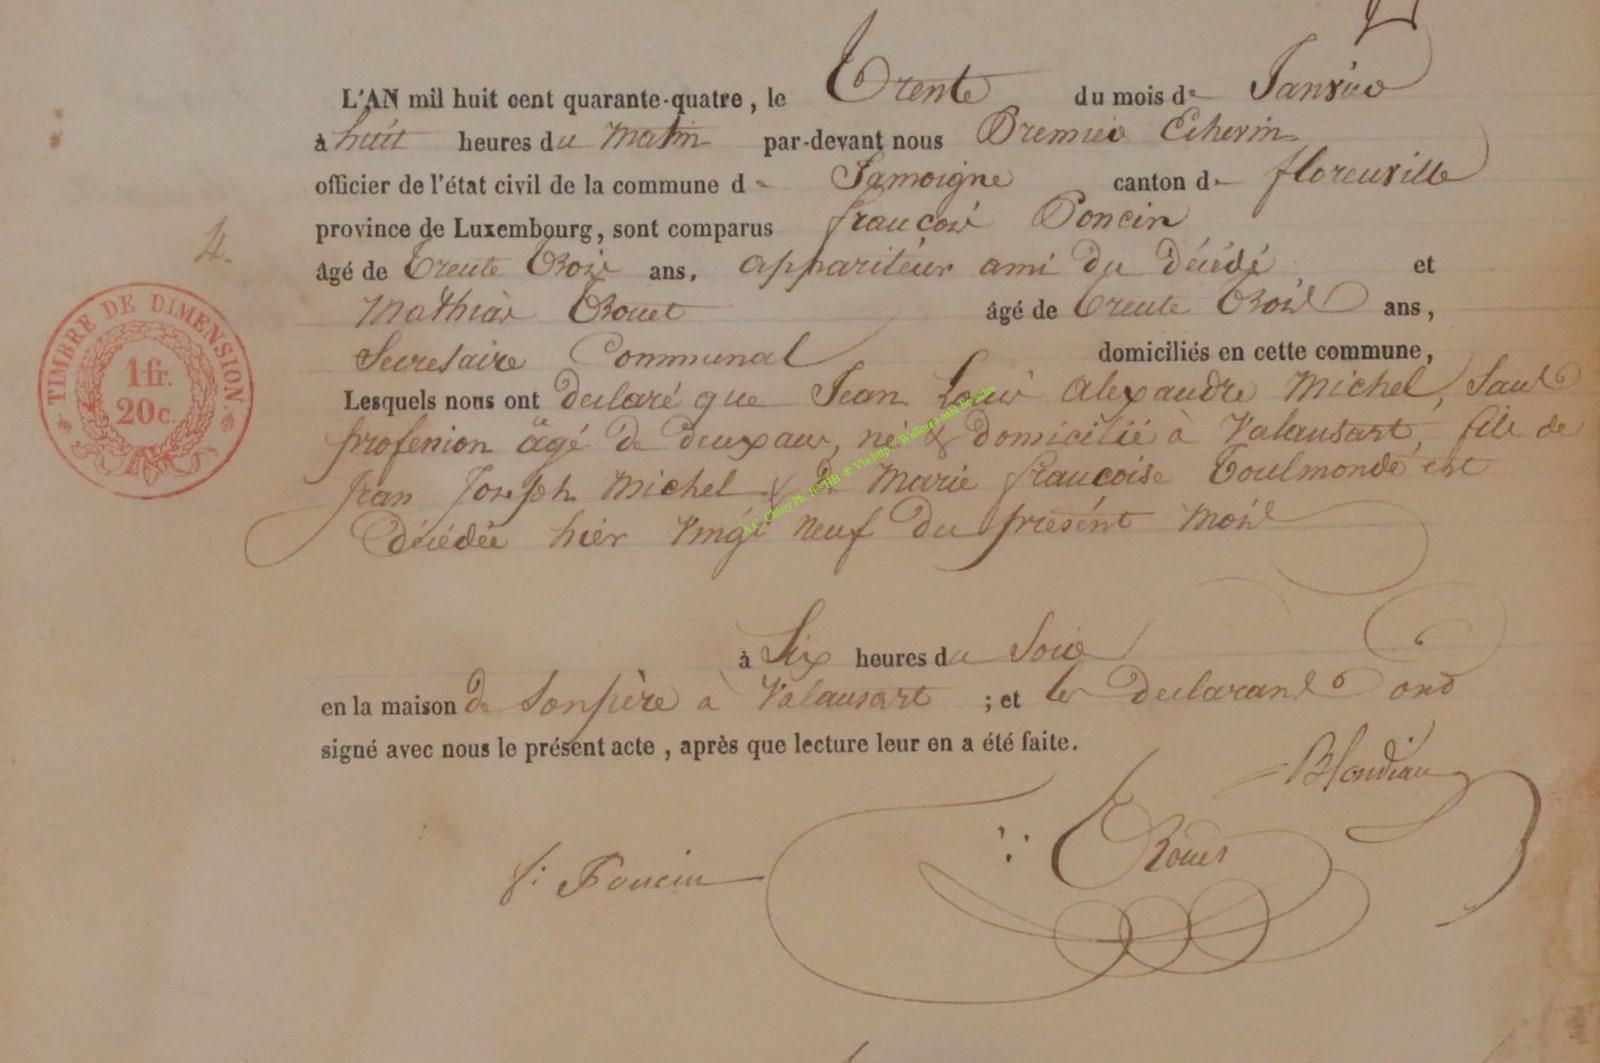 L'AN mil huit cent quarante-quatre, le Trente du mois de Janvier
à huit heures du Matin par-devant nous Premier Echevin
officier de l'état civil de la commune de Jamoigne canton de florenville
province de Luxembourg, sont comparus françois Poncin
4.
âgé de Trente Trois ans, appariteur ami du décédé et
Mathias Trouet âgé de Trente Trois ans,
Secretaire Communal domiciliés en cette commune,
Lesquels nous ont declaré que Jean Louis Alexandre Michel, Sans
profession âgé de deux ans, né & domicilié à Valansart, fils de
Jean Joseph Michel & de Marie françoise Toulmonde est
décédée hier Vingt neuf du présent mois
à Six heures du Soir
en la maison de Son père à Valansart ; et les declarants ont
signé avec nous le présent acte, après que lecture leur en a été faite.
Blondiau
Trouet
f: Poncin
TIMBRE DE DIMENSION
1 fr.
20 c.